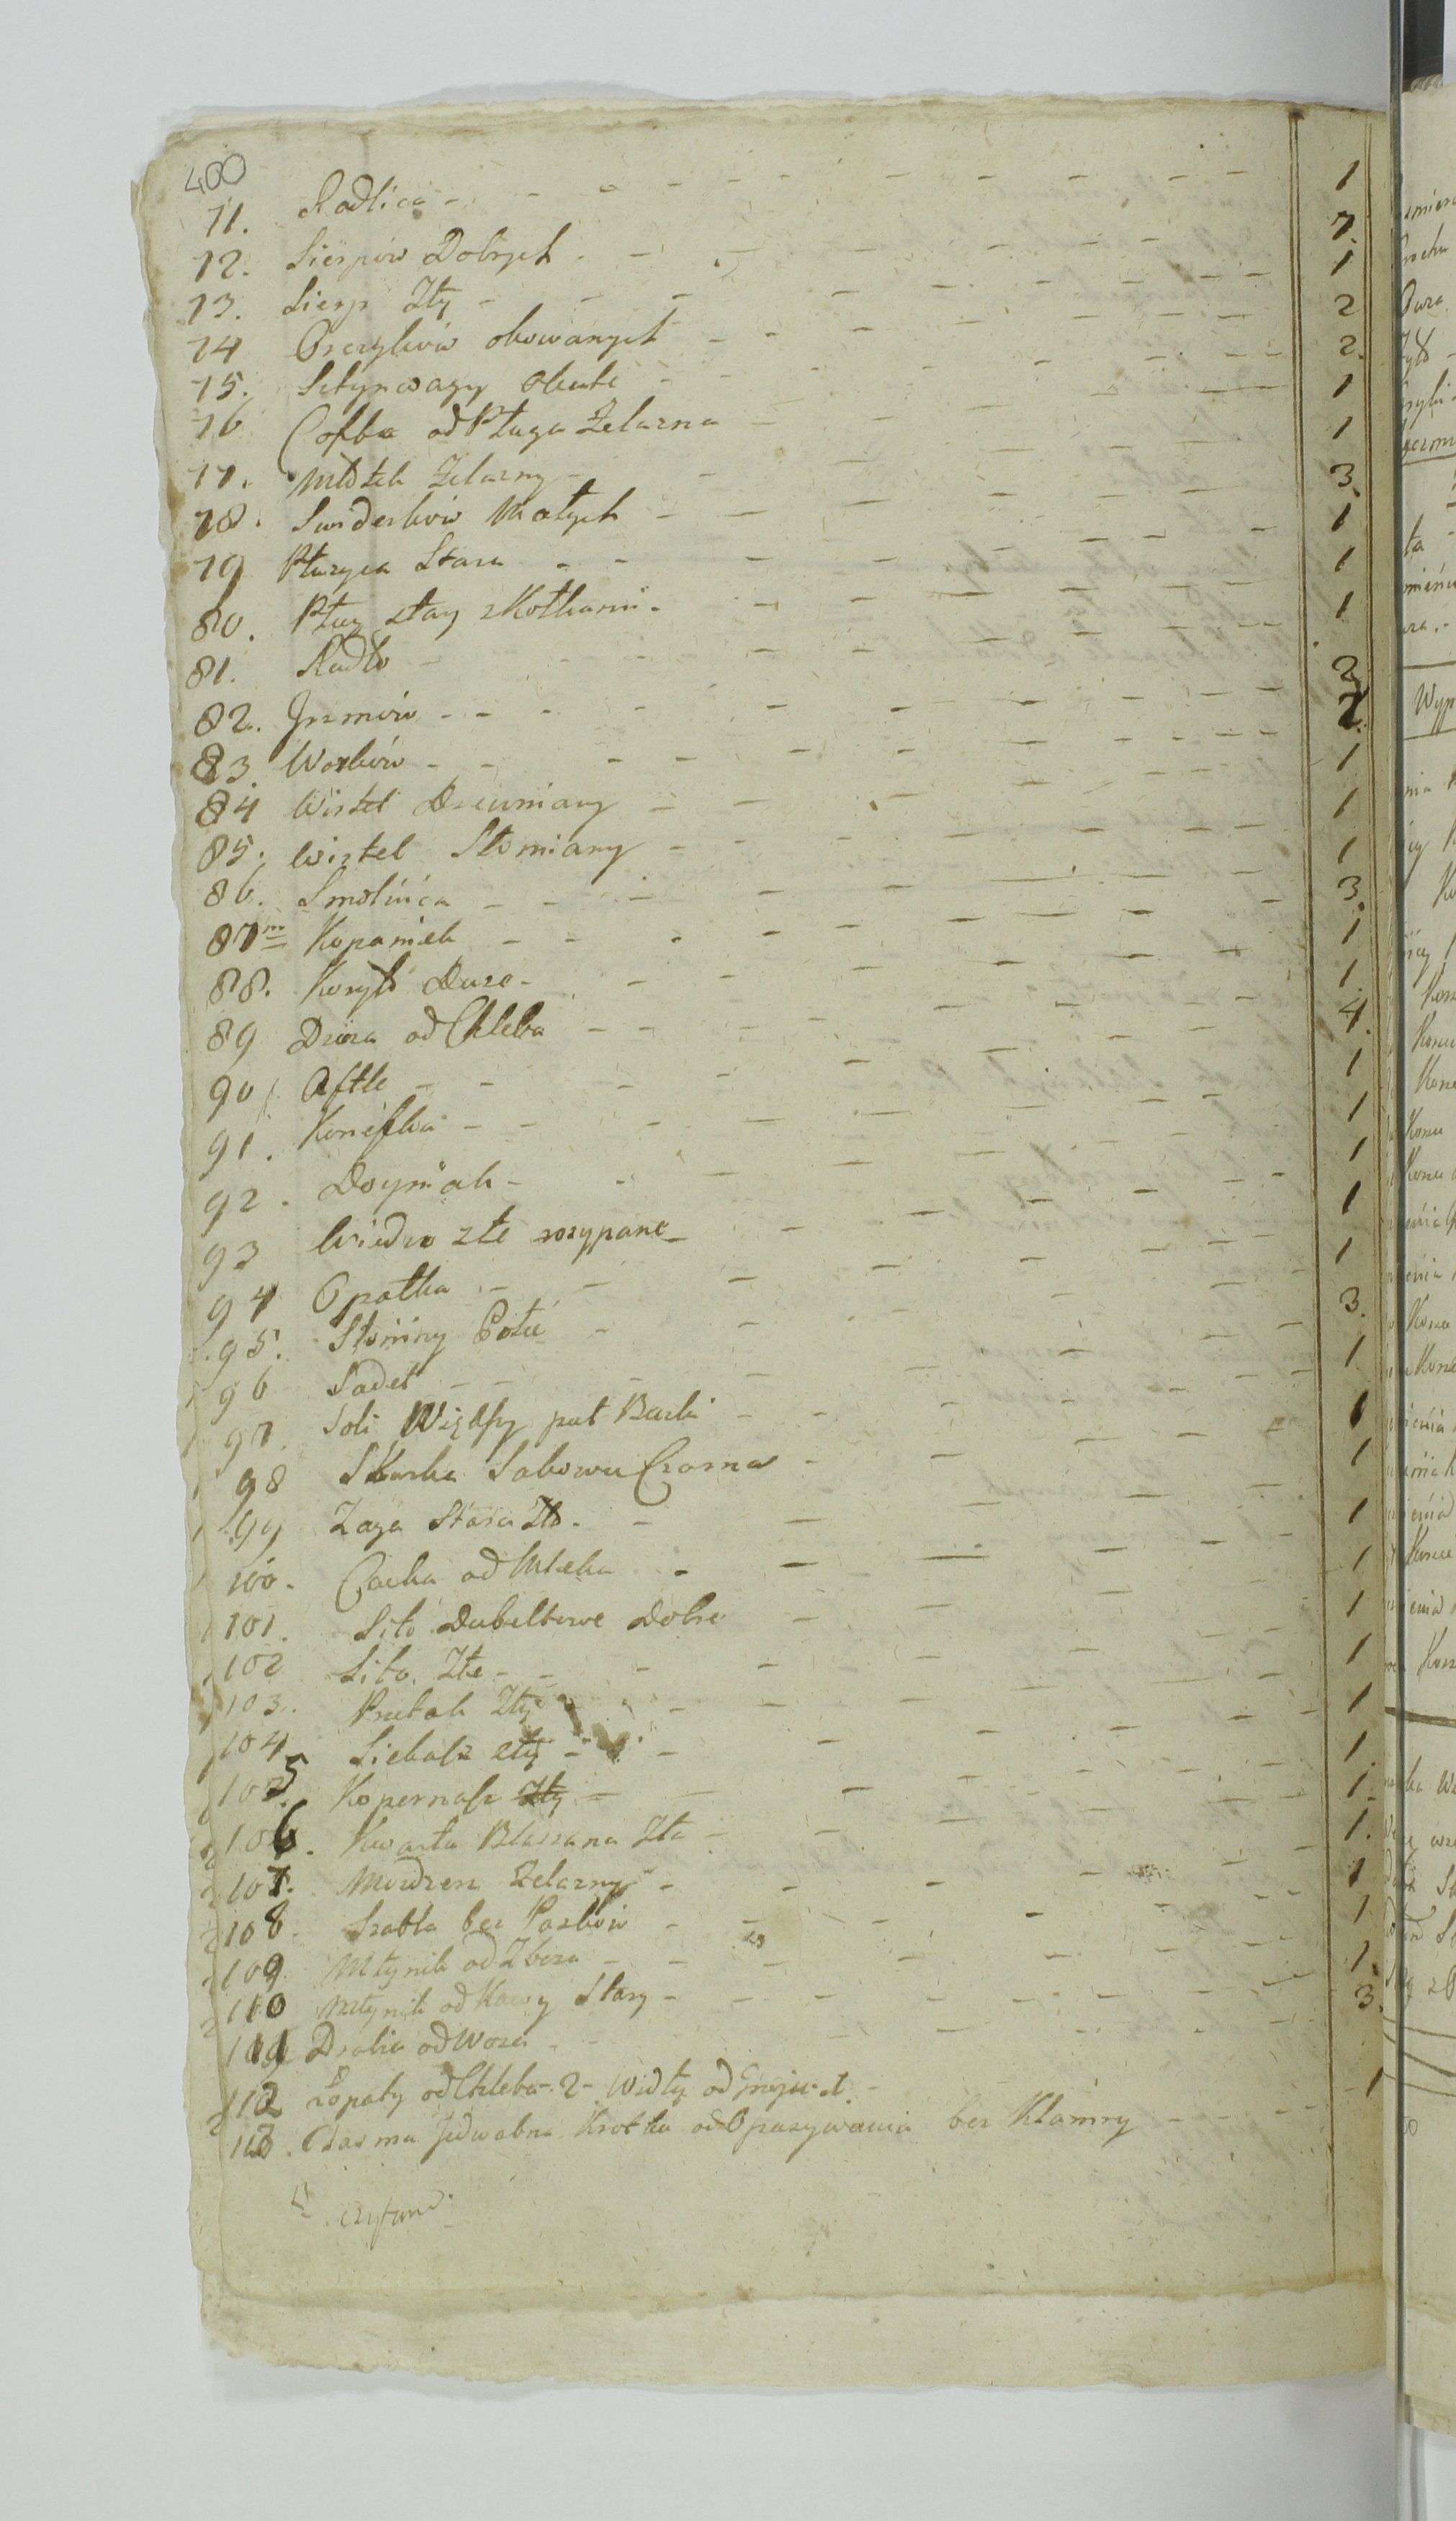 400
71. Radlica - - - - - - - - - 1
72. Sierpów Dobrych - - - - 7.
73. Sierp Zły - - - - - - - 1
74 Orczyków okowanych - - - - 2
75. Sztynwagy Okute - - - - 2.
76 od Pługa Żelazna - - - 1
77. Młotek Żelazny - - - - 1
78. Swiderków Małych - - - - 3.
79 Płużyca Stara - - - - 1
80. Pług stary z Kołkami - - - - 1
81. Radło - - - - - - 1
82. Jrzmów - - - - - - 2
83. Workow - - - - - - 2.
84 Wirtel Drewniany - - - - 1
85. Wirtel Słomiany - - - - 1
86. Smolnica - - - - - 1
87m Kopaniek - - - - - 3.
88. Koryto Duze - - - - - 1
89 Dzieza od Chleba - - - - 1
90 - - - - - 4.
91. Konefka - - - - - 1
92. Doyniak - - - - - 1
93 Wiedro złe rozypane - - - - 1
94 Opałka - - - - - 1
95. Słoniny Połcie - - - - 1
96 Sadeł - - - - - 3.
97. Soli Większy puł Beczki - - - - 1
98 Skurka Czarna - - - - 1
99 Zaga Stara Zła - - - - 1
100. od Mleka - - - - 1
101. Sito Dubeltowe Dobre - - - - 1
102 Sito Złe - - - - - 1
103. Przetak Zły - - - - 1
104 Siekacz zły - - - - 1
105. Zły - - - - 1.
106. Kwarta Blaszana Zła - - - - 1.
107. Mozdzerz Żelazny - - - - 1.
108. Szabla bez Paskow - - - - 1
109 Młynik od Zboza - - - - 1
110 Młynik od Kawy Stary - - - - 1.
111 Drabia od Woza - - - - 3.
112 Łopaty od Chleba - 2 - Widły od Gnoju - 1.
113. Jedwabna Krotka od Opasywania bez Klamry - - - - 1